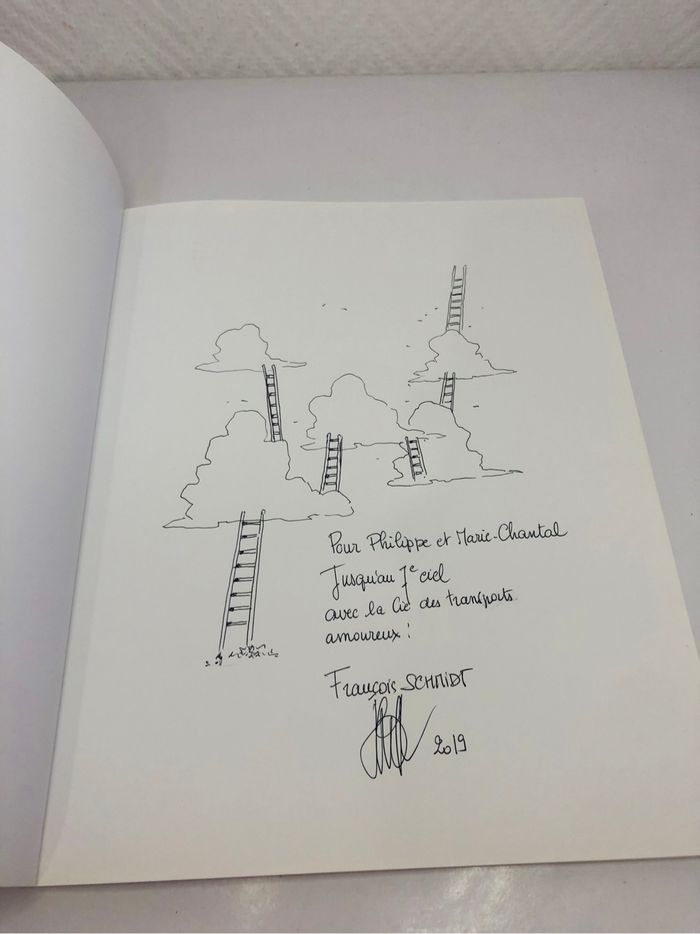 Pour Philippe et Marie-Chantal
Jusqu'au 7e ciel
avec la Cie des transports
amoureux !
François SCHMIDT
2019